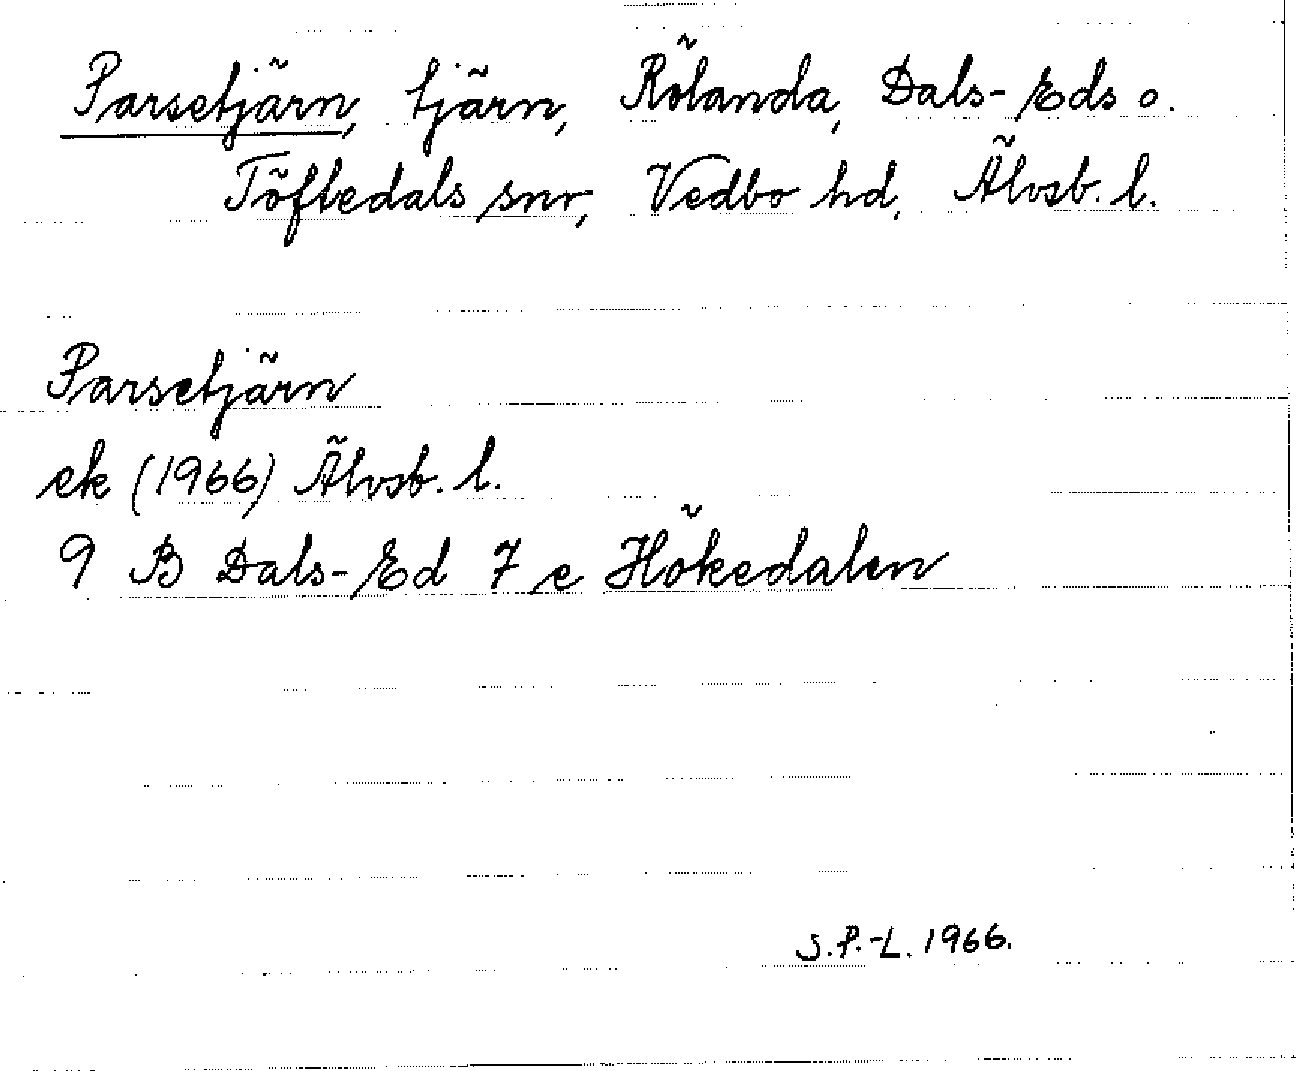 Parsetjärn, tjärn, Rölanda, Dals-Eds o.
Töftedals snr, Vedbo hd, Älvsb. l.
Parsetjärn
ek (1966) Älvsb. l.
9 B Dals-Ed 7 e Hökedalen
S.P.-L. 1966.